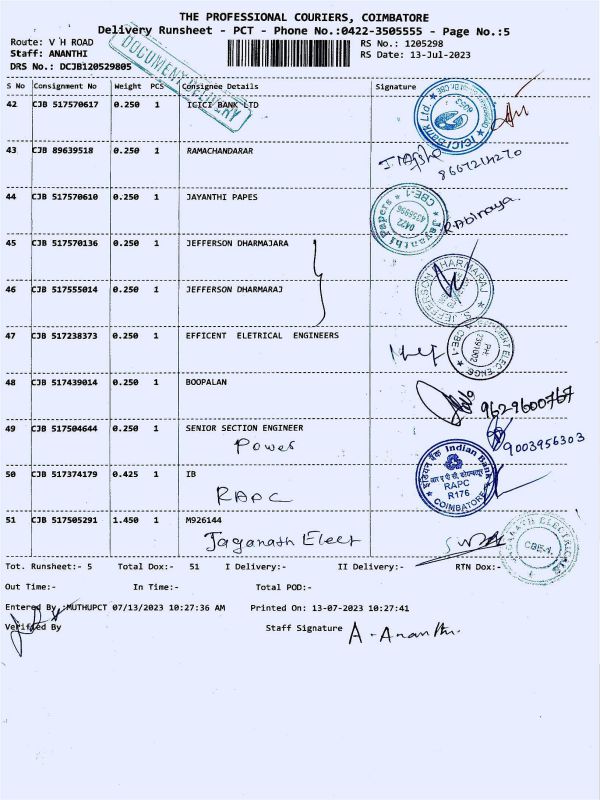 THE PROFESSIONAL COURIERS, COIMBATORE
Delivery Runsheet - PCT - Phone No.:0422-3505555 - Page No.:5
Route: V H ROAD
RS No.: 1205298
Staff: ANANTHI
RS Date: 13-Jul-2023
DRS No.: DCJB120529805
DOCUMENT DELIVERY
S No Consignment No Weight PCS Consignee Details Signature
42 CJB 517570617 0.250 1 ICICI BANK LTD
ICICI Bank Ltd.
43 CJB 89639518 0.250 1 RAMACHANDARAR
44 CJB 517570610 0.250 1 JAYANTHI PAPES
Jayanthi Papers
CBE-1
0422
4355996
R.Abinaya.
45 CJB 517570136 0.250 1 JEFFERSON DHARMAJARA
46 CJB 517555014 0.250 1 JEFFERSON DHARMARAJ
S. JEFFERSON DHARMARAJ
47 CJB 517238373 0.250 1 EFFICENT ELETRICAL ENGINEERS
CBE-1
48 CJB 517439014 0.250 1 BOOPALAN
9629600767
49 CJB 517504644 0.250 1 SENIOR SECTION ENGINEER
Power
9003956303
50 CJB 517374179 0.425 1 IB
RAPC
इंडियन बैंक Indian Bank
RAPC
R176
COIMBATORE
51 CJB 517505291 1.450 1 M926144
Jaganath Elect
CBE-1
Tot. Runsheet:- 5 Total Dox:- 51 I Delivery:- II Delivery:- RTN Dox:-
Out Time:- In Time:- Total POD:-
Entered By :MUTHUPCT 07/13/2023 10:27:36 AM Printed On: 13-07-2023 10:27:41
Verified By Staff Signature A. Ananthi.